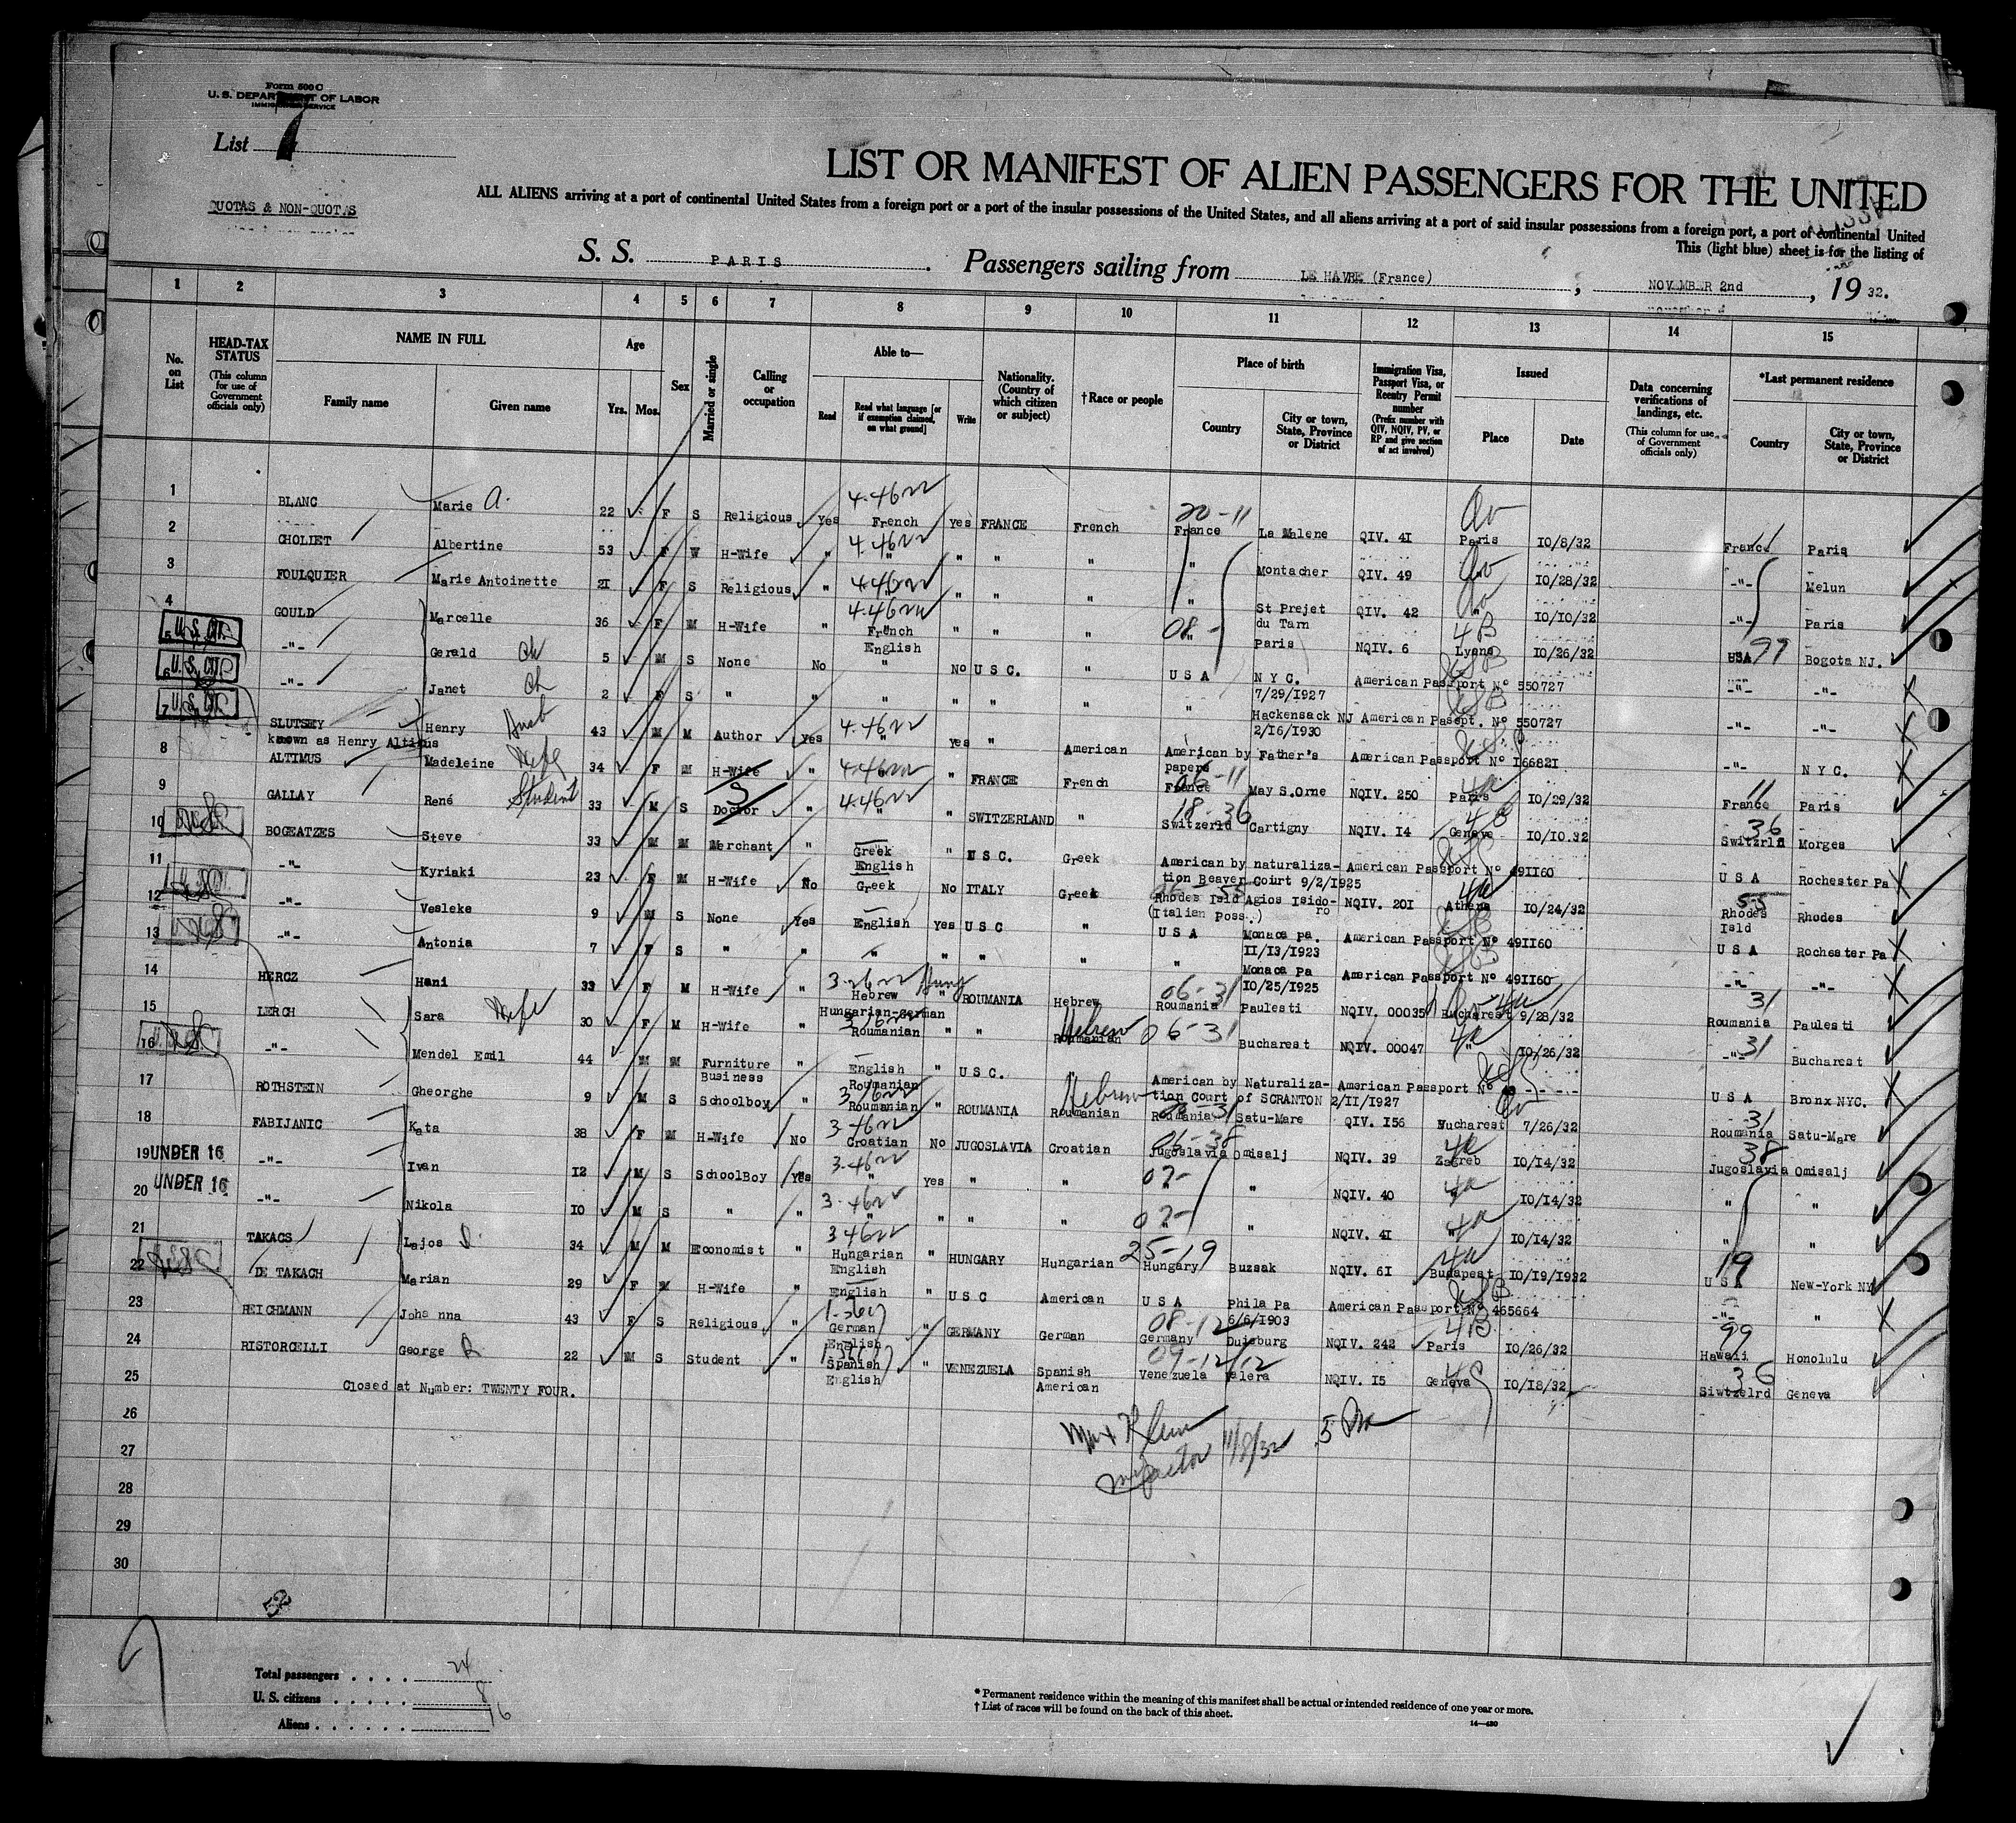 Form 500 C
U. S. DEPARTMENT OF LABOR
IMMIGRATION SERVICE
List
QUOTAS & NON-QUOTAS
LIST OR MANIFEST OF ALIEN PASSENGERS FOR THE UNITED
ALL ALIENS arriving at a port of continental United States from a foreign port or a port of the insular possessions of the United States, and all aliens arriving at a port of said insular possessions from a foreign port, a port of continental United
This (light blue) sheet is for the listing of
S. S. PARIS. Passengers sailing from LE HAVRE (France), NOVEMBER 2nd, 19 32.
1 2 3 4 5 6 7 8 9 10 11 12 13 14 15
No. on List
HEAD-TAX STATUS
(This column for use of Government officials only)
NAME IN FULL
Family name
Given name
Age
Yrs. Mos.
Sex
Married or single
Calling or occupation
Able to—
Read
Read what language [or if exemption claimed, on what ground]
Write
Nationality. (Country of which citizen or subject)
†Race or people
Place of birth
Country
City or town, State, Province or District
Immigration Visa, Passport Visa, or Reentry Permit number
(Prefix number with QIV, NQIV, PV, or RP and give section of act involved)
Issued
Place
Date
Data concerning verifications of landings, etc.
(This column for use of Government officials only)
*Last permanent residence
Country
City or town, State, Province or District
1 BLANC Marie A. 22 F S Religious Yes French Yes FRANCE French France La Malene QIV. 41 Paris 10/8/32 France Paris
2 CHOLIET Albertine 53 F W H-Wife " " " " " " Montacher QIV. 49 " 10/28/32 -"- Melun
3 FOULQUIER Marie Antoinette 21 F S Religious " " " " " " St Prejet du Tarn QIV. 42 " 10/10/32 -"- Paris
4 GOULD Marcelle 36 F M H-Wife " French English " " " " Paris NQIV. 6 Lyons 10/26/32 USA Bogota NJ.
5 U. S. CIT. -"- Gerald Ch 5 M S None No " No U S C. " U S A N Y C. 7/29/1927 American Passport No 550727 -"- -"-
6 U. S. CIT. -"- Janet Ch 2 F S " " " " " " Hackensack NJ 2/16/1930 American Passpt. No 550727 -"- -"-
7 U. S. CIT. SLUTSKY known as Henry Altimus Henry Husb 43 M M Author Yes " Yes " American American by Father's papers American Passport No 166821 -"- N Y C.
8 ALTIMUS Madeleine Wife 34 F M H-Wife " " " FRANCE French France May S.Orne NQIV. 250 Paris 10/29/32 France Paris
9 GALLAY René Student 33 M S Doctor " " " SWITZERLAND " Switzerld Cartigny NQIV. 14 Geneve 10/10.32 Switzrld Morges
10 BOGEATZES Steve 33 M M Merchant " Greek English " U S C. Greek American by naturalization Beaver Court 9/2/1925 American Passport No 491160 U S A Rochester Pa
11 -"- Kyriaki 23 F M H-Wife No Greek No ITALY Greek Rhodes Isld (Italian Poss.) Agios Isidoro NQIV. 201 Athens 10/24/32 Rhodes Isld Rhodes
12 -"- Vesleke 9 M S None Yes English Yes U S C " U S A Monaca pa. 11/13/1923 American Passport No 491160 U S A Rochester Pa
13 -"- Antonia 7 F S " " " " " " " Monaca Pa 10/25/1925 American Passport No 491160 -"- -"-
14 HERCZ Hani 33 F M H-Wife " Hebrew Hungarian-german " ROUMANIA Hebrew Roumania Paulesti NQIV. 00035 Bucharest 9/28/32 Roumania Paulesti
15 LERCH Sara Wife 30 F M H-Wife " Roumanian " " Roumanian Hebrew Bucharest NQIV. 00047 " 10/26/32 -"- Bucharest
16 -"- Mendel Emil 44 M M Furniture Business " English Roumanian " U S C. " American by Naturalization Court of SCRANTON 2/11/1927 American Passport No - - - - U S A Bronx NYC.
17 ROTHSTEIN Gheorghe 9 M S Schoolboy " Roumanian " ROUMANIA Roumanian Hebrew Roumania Satu-Mare QIV. 156 Bucharest 7/26/32 Roumania Satu-Mare
18 FABIJANIC Kata 38 F M H-Wife No Croatian No JUGOSLAVIA Croatian Jugoslavia Omisalj NQIV. 39 Zagreb 10/14/32 Jugoslavia Omisalj
19 UNDER 16 -"- Ivan 12 M S SchoolBoy Yes " Yes " " " NQIV. 40 " 10/14/32 " "
20 UNDER 16 -"- Nikola 10 M S " " " " " " " " NQIV. 41 " 10/14/32 " "
21 TAKACS Lajos 34 M M Economist " Hungarian English " HUNGARY Hungarian Hungary Buzsak NQIV. 61 Budapest 10/19/1932 U S A New-York NY
22 DE TAKACH Marian 29 F M H-Wife " English " U S C American U S A Phila Pa 6/6/1903 American Passport No 465664 -"- "
23 REICHMANN Johanna 43 F S Religious " German English " GERMANY German Germany Duisburg NQIV. 242 Paris 10/26/32 Hawaii Honolulu
24 RISTORCELLI George R 22 M S Student " Spanish English " VENEZUELA Spanish American Venezuela Valera NQIV. 15 Geneva 10/18/32 Siwtzelrd Geneva
25 Closed at Number: TWENTY FOUR.
26
27
28
29
30
Max Klein
Inspector 11/8/32 5 Pm
Total passengers . . . . 24
U. S. citizens . . . . . 8
Aliens . . . . . . 16
* Permanent residence within the meaning of this manifest shall be actual or intended residence of one year or more.
† List of races will be found on the back of this sheet.
14—430